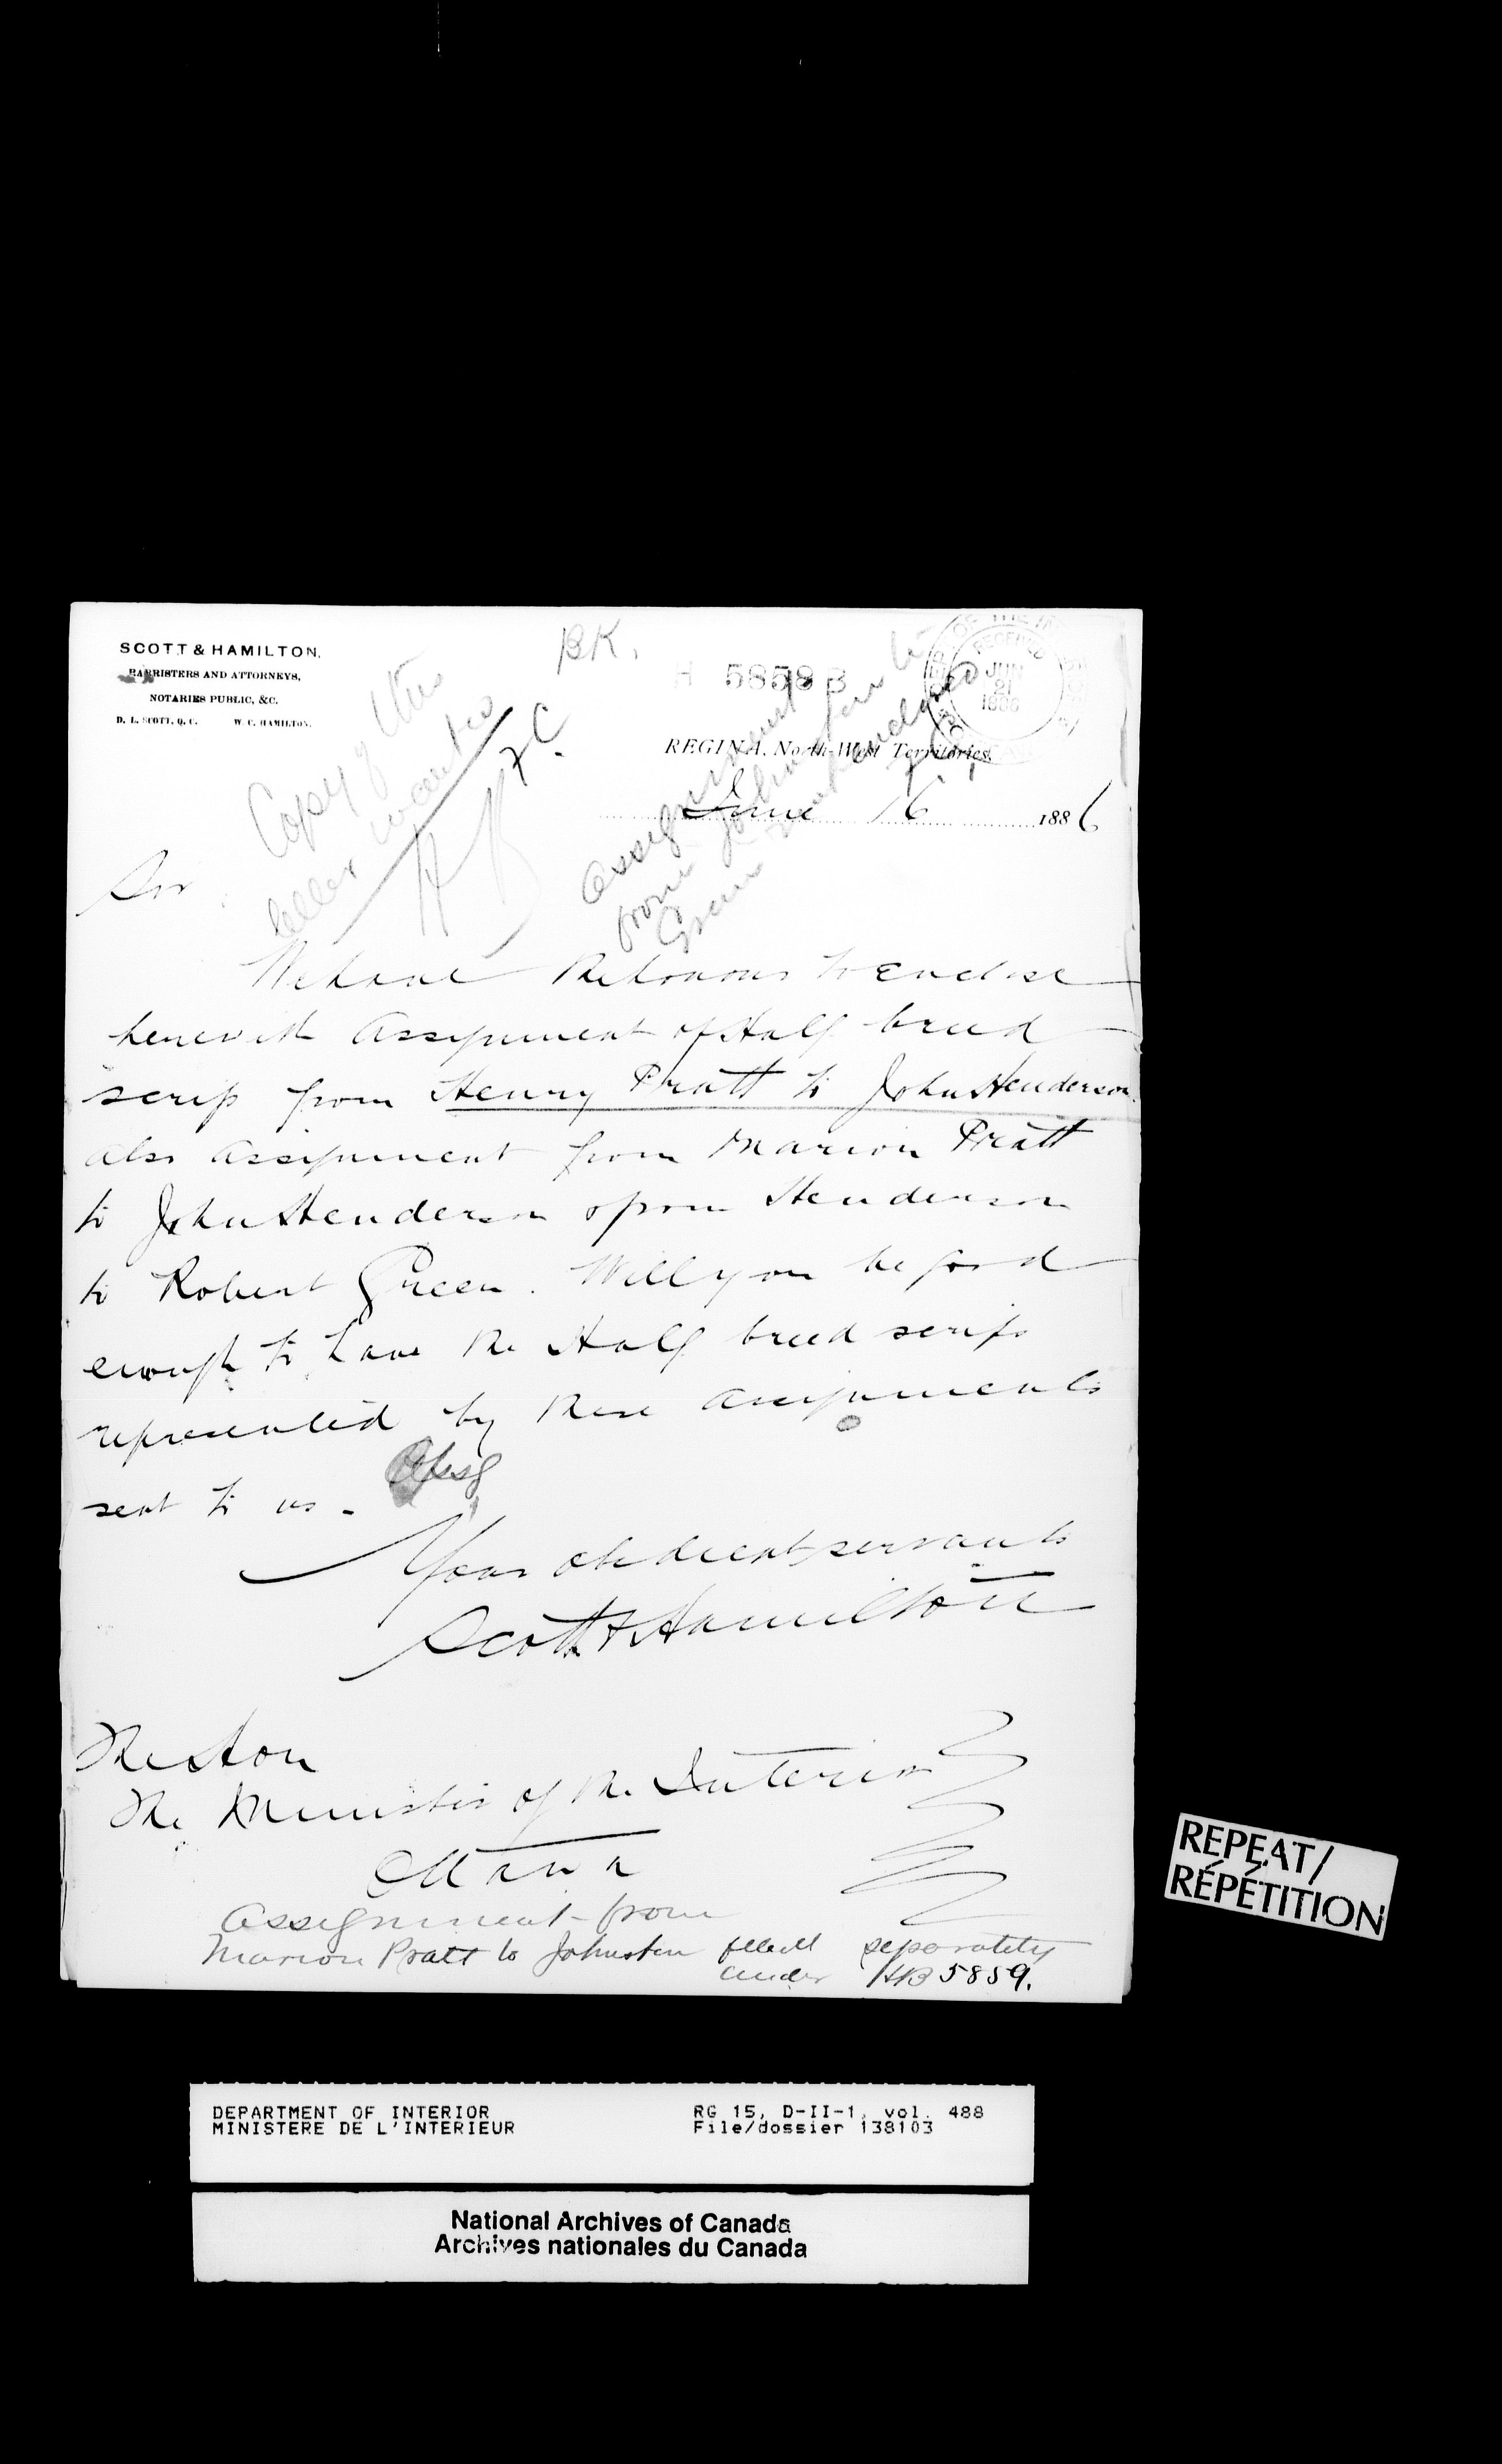 SCOTT & HAMILTON,
BARRISTERS AND ATTORNEYS,
NOTARIES PUBLIC, &C.
D. L. SCOTT, Q. C. W. C. HAMILTON.
BK.
H 5858 B
RECEIVED
JUN
21
1886
Copy of this
letter wanted
Assignment
from Johnston to
Green not enclosed
REGINA, North-West Territories,
June 16 1886
Sir
We have the honour to enclose
herewith assignment of Half breed
scrip from Henry Pratt to John Henderson
also assignment from Marion Pratt
to John Henderson & from Henderson
to Robert Green. Will you be good
enough to have the Half breed scrip
represented by these assignments
sent to us -
Your obedient servants
Scott & Hamilton
The Hon
The Minister of the Interior
Ottawa
Assignment from
Marion Pratt to Johnston filed separately
under HB 5859.
REPEAT/
RÉPÉTITION
DEPARTMENT OF INTERIOR RG 15, D-II-1, vol. 488
MINISTERE DE L'INTERIEUR File/dossier 138103
National Archives of Canada
Archives nationales du Canada